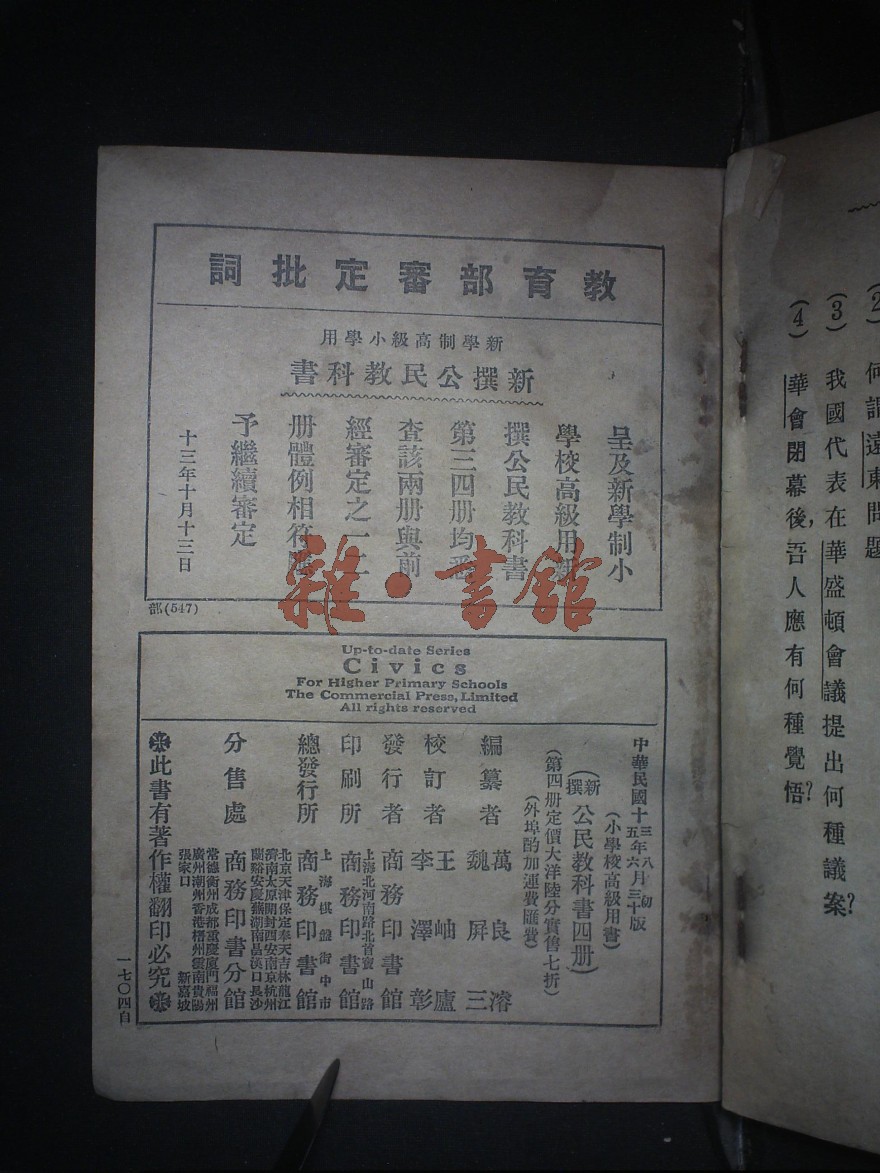 (2) 何謂遠東問題
(3) 我國代表在華盛頓會議提出何種議案?
(4) 華會閉幕後,吾人應有何種覺悟?
教育部審定批詞
新學制高級小學用
新撰公民教科書
呈及新學制小
學校高級用新
撰公民教科書
第三四册均悉
查該兩册與前
經審定之一二
册體例相符
予繼續審定
十三年十月十三日
部(547)
雜·書館
Up-to-date Series
Civics
For Higher Primary Schools
The Commercial Press, Limited
All rights reserved
中華民國十三年八月初版
五年六月三十版
(小學校高級用書)
(新撰)公民教科書四册)
(第四册定價大洋陸分實售七折)
(外埠酌加運費匯費)
編纂者 萬良濬
魏屏三
校訂者 王岫廬
李澤彰
發行者 商務印書館
印刷所 上海北河南路北首寶山路
商務印書館
總發行所 上海棋盤街中市
商務印書館
分售處 北京天津保定奉天吉林龍江
濟南太原開封西安南京杭州
蘭谿安慶蕪湖南昌漢口長沙
商務印書分館
常德衡州成都重慶廈門福州
廣州潮州香港梧州雲南貴陽
張家口 新嘉坡
此書有著作權翻印必究
一七〇四自